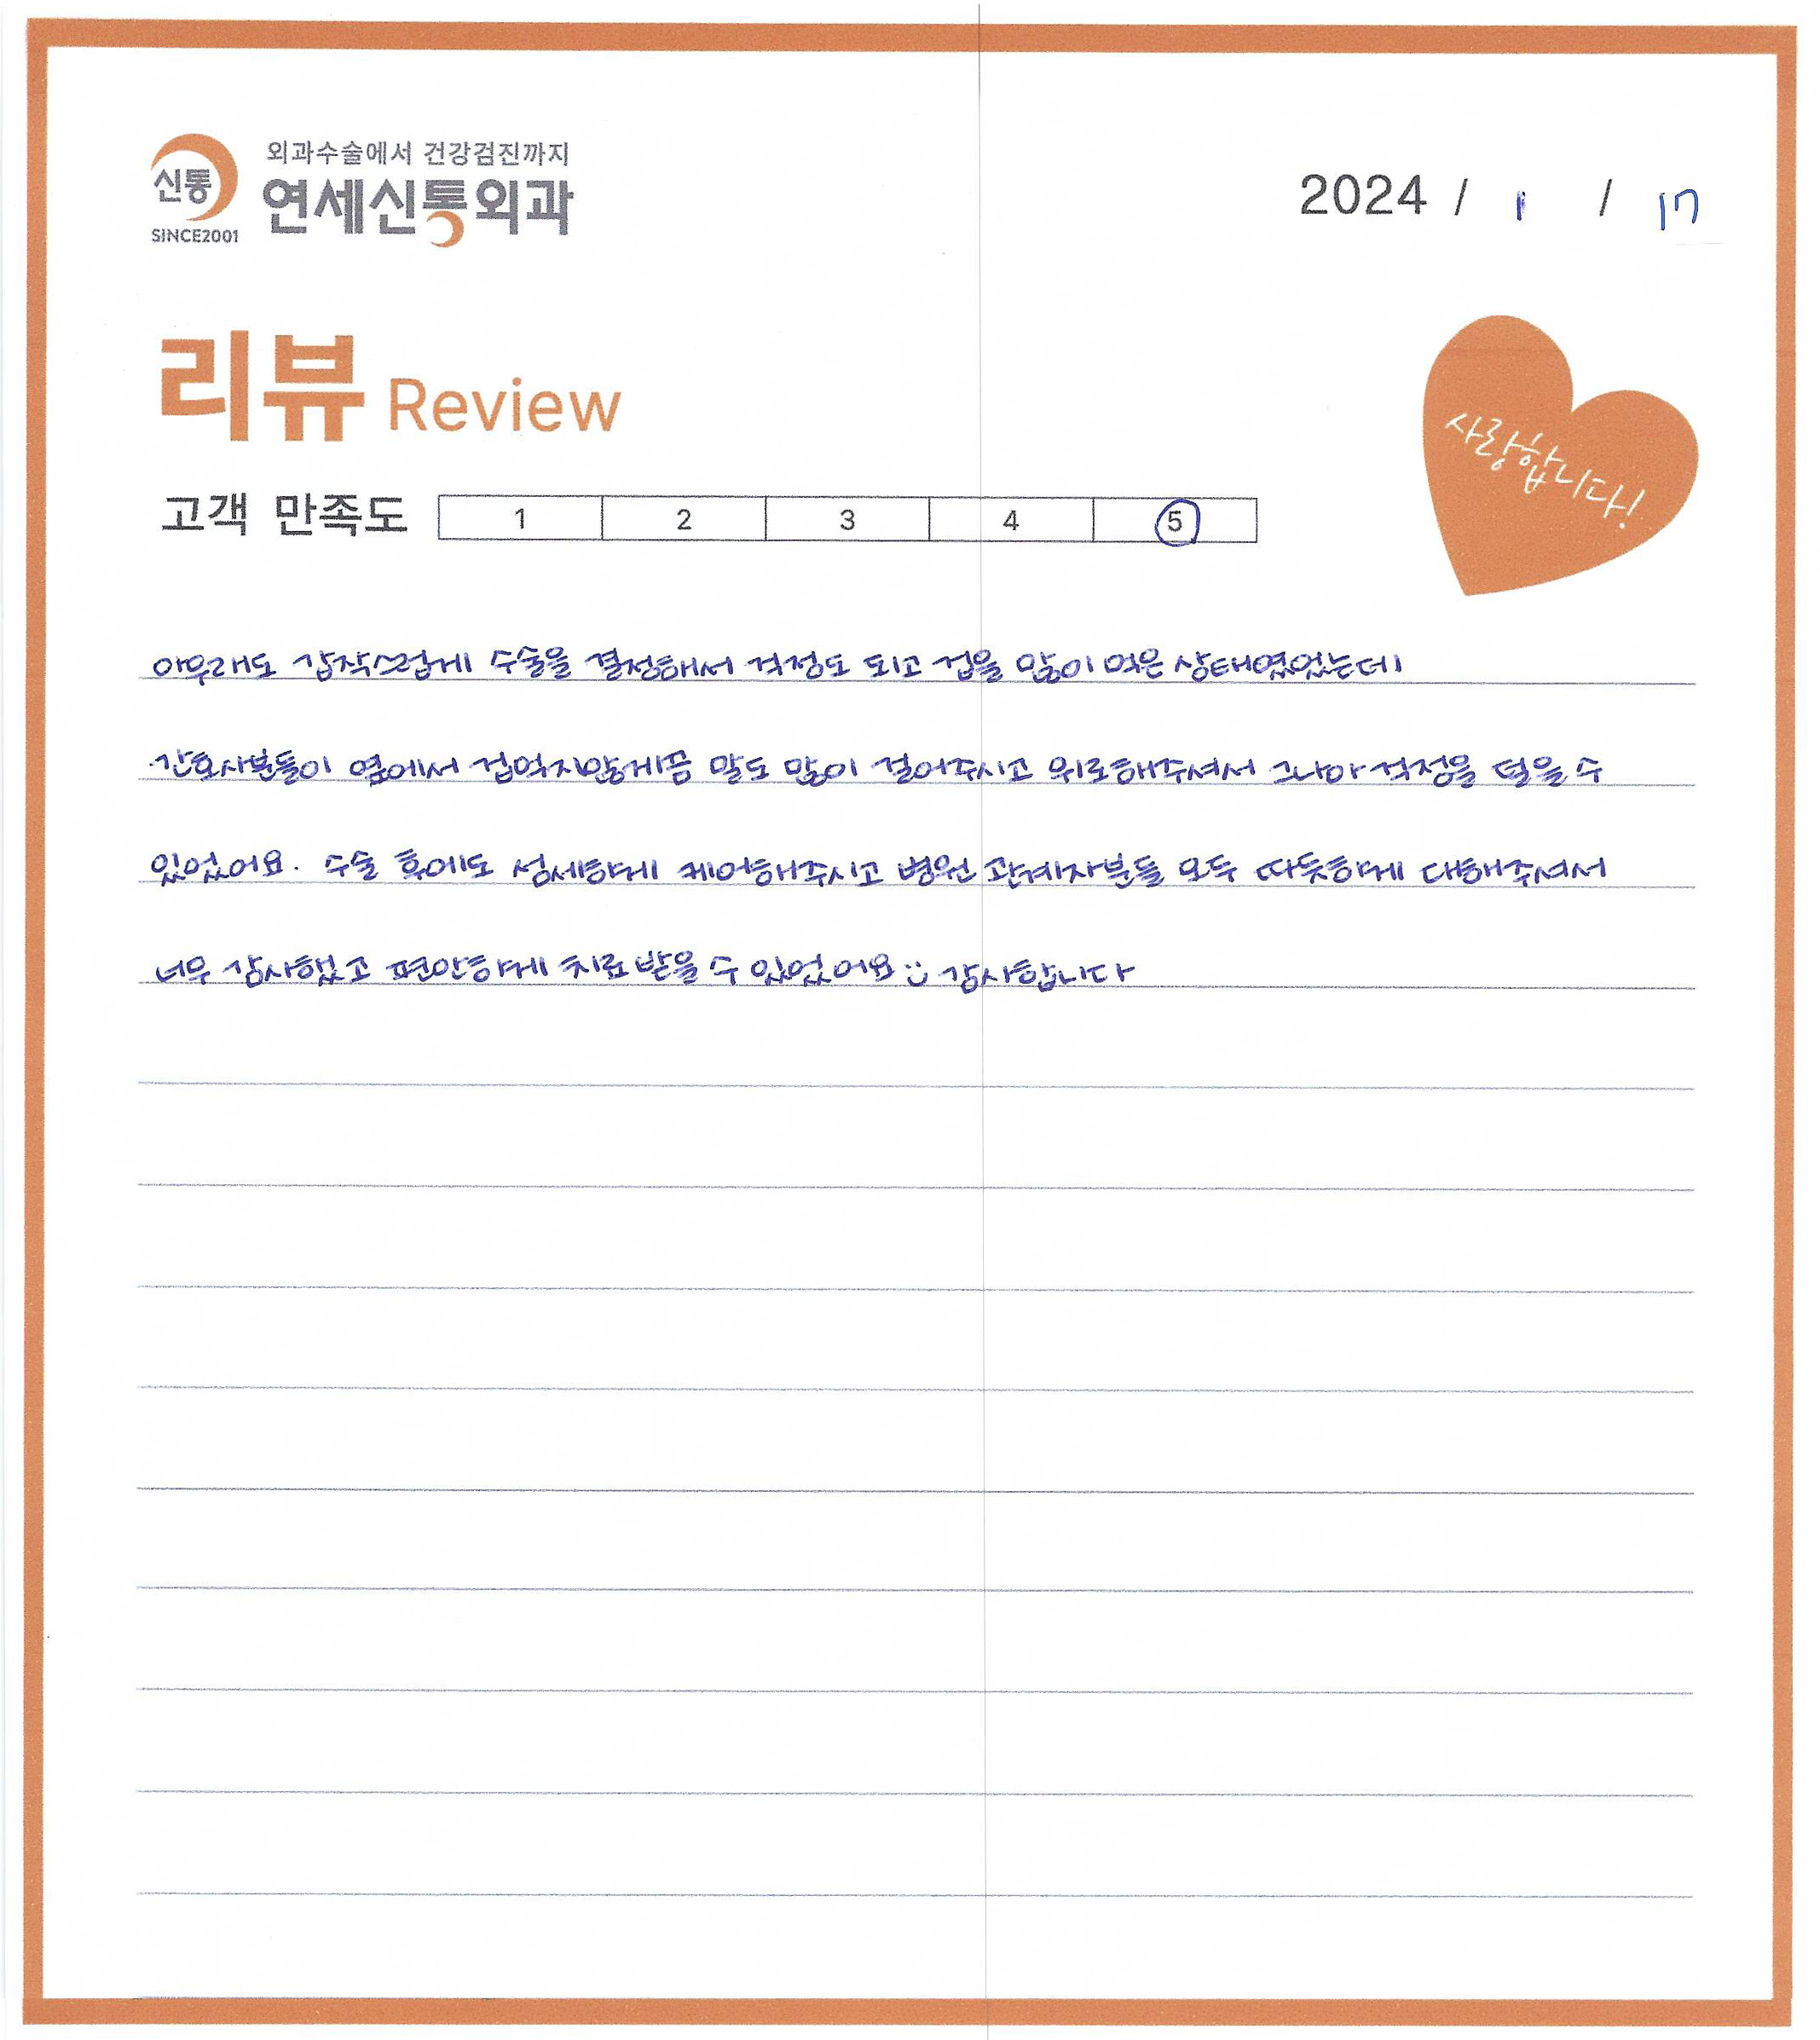 신통
SINCE2001
외과수술에서 건강검진까지
연세신통외과
2024 / 1 / 17
리뷰 Review
사랑합니다!
고객 만족도 1 2 3 4 5
아무래도 갑작스럽게 수술을 결정해서 걱정도 되고 겁을 많이 먹은 상태였었는데
간호사분들이 옆에서 겁먹지않게끔 말도 많이 걸어주시고 위로해주셔서 그나마 걱정을 덜을 수
있었어요. 수술 후에도 섬세하게 케어해주시고 병원 관계자분들 모두 따듯하게 대해주셔서
너무 감사했고 편안하게 치료 받을 수 있었어요 :) 감사합니다